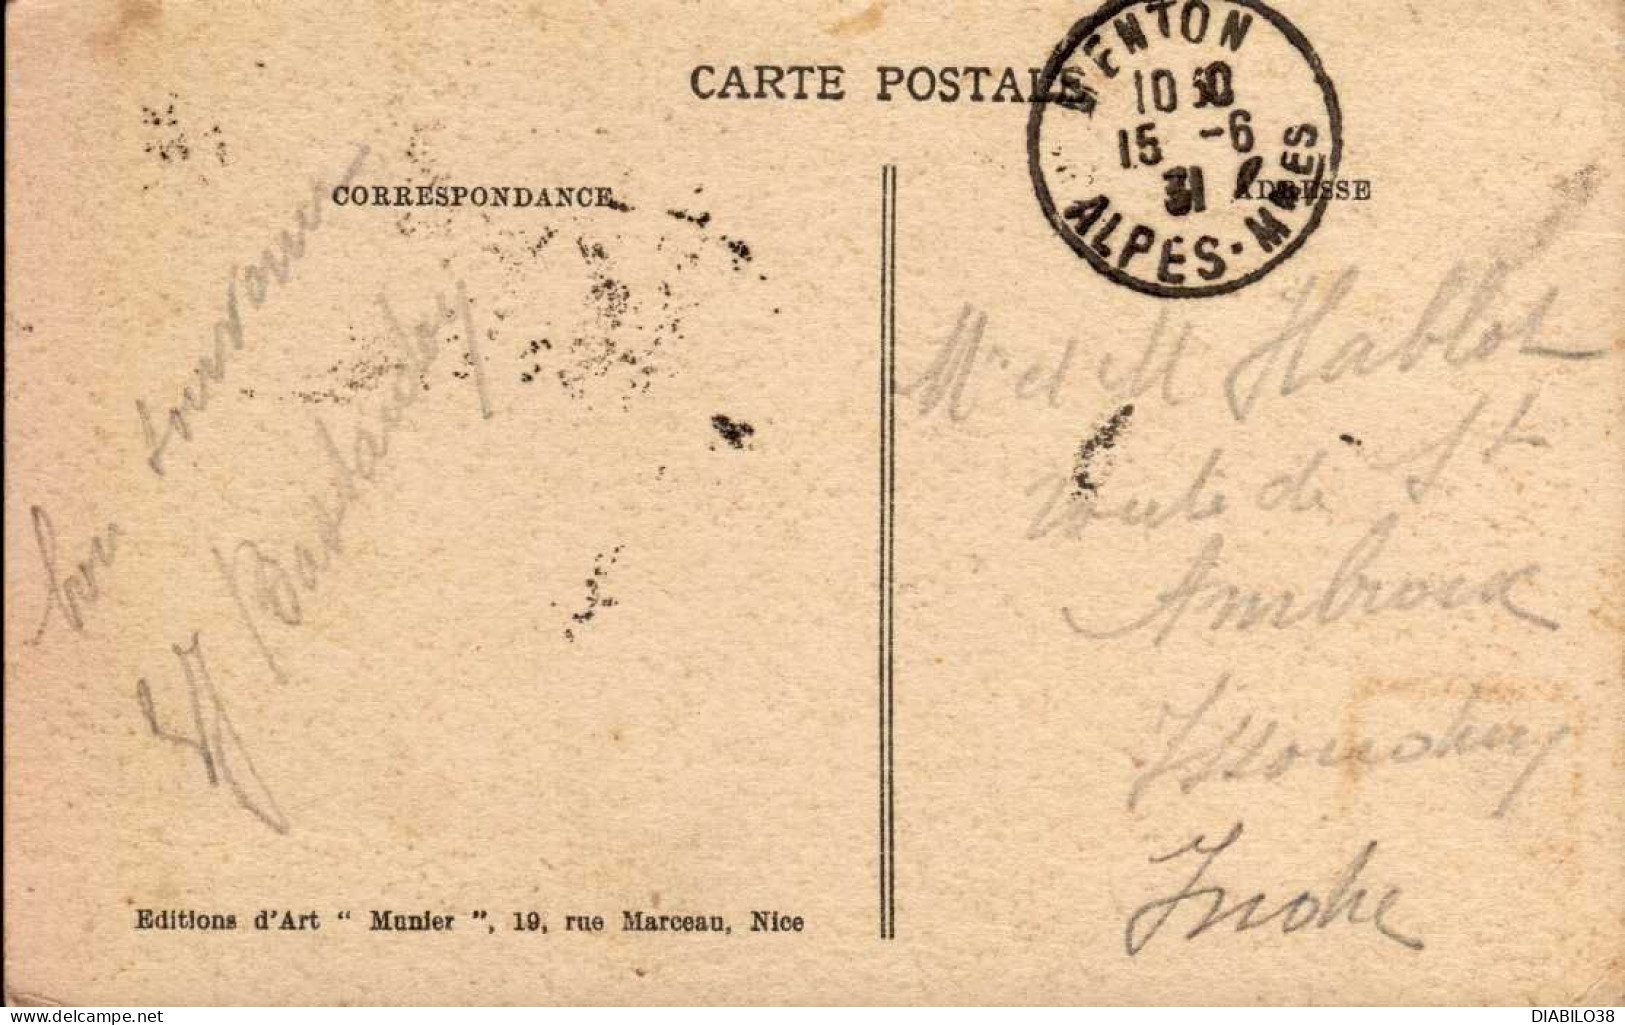 CARTE POSTALE
MENTON
10 30
15 -6
31
ALPES-MMES
CORRESPONDANCE
ADRESSE
bon souvenir
Mr et M Hablot
route de St
Ambroix
Issoudun
Indre
Editions d'Art “ Munier ”, 19, rue Marceau, Nice
DIABILO38